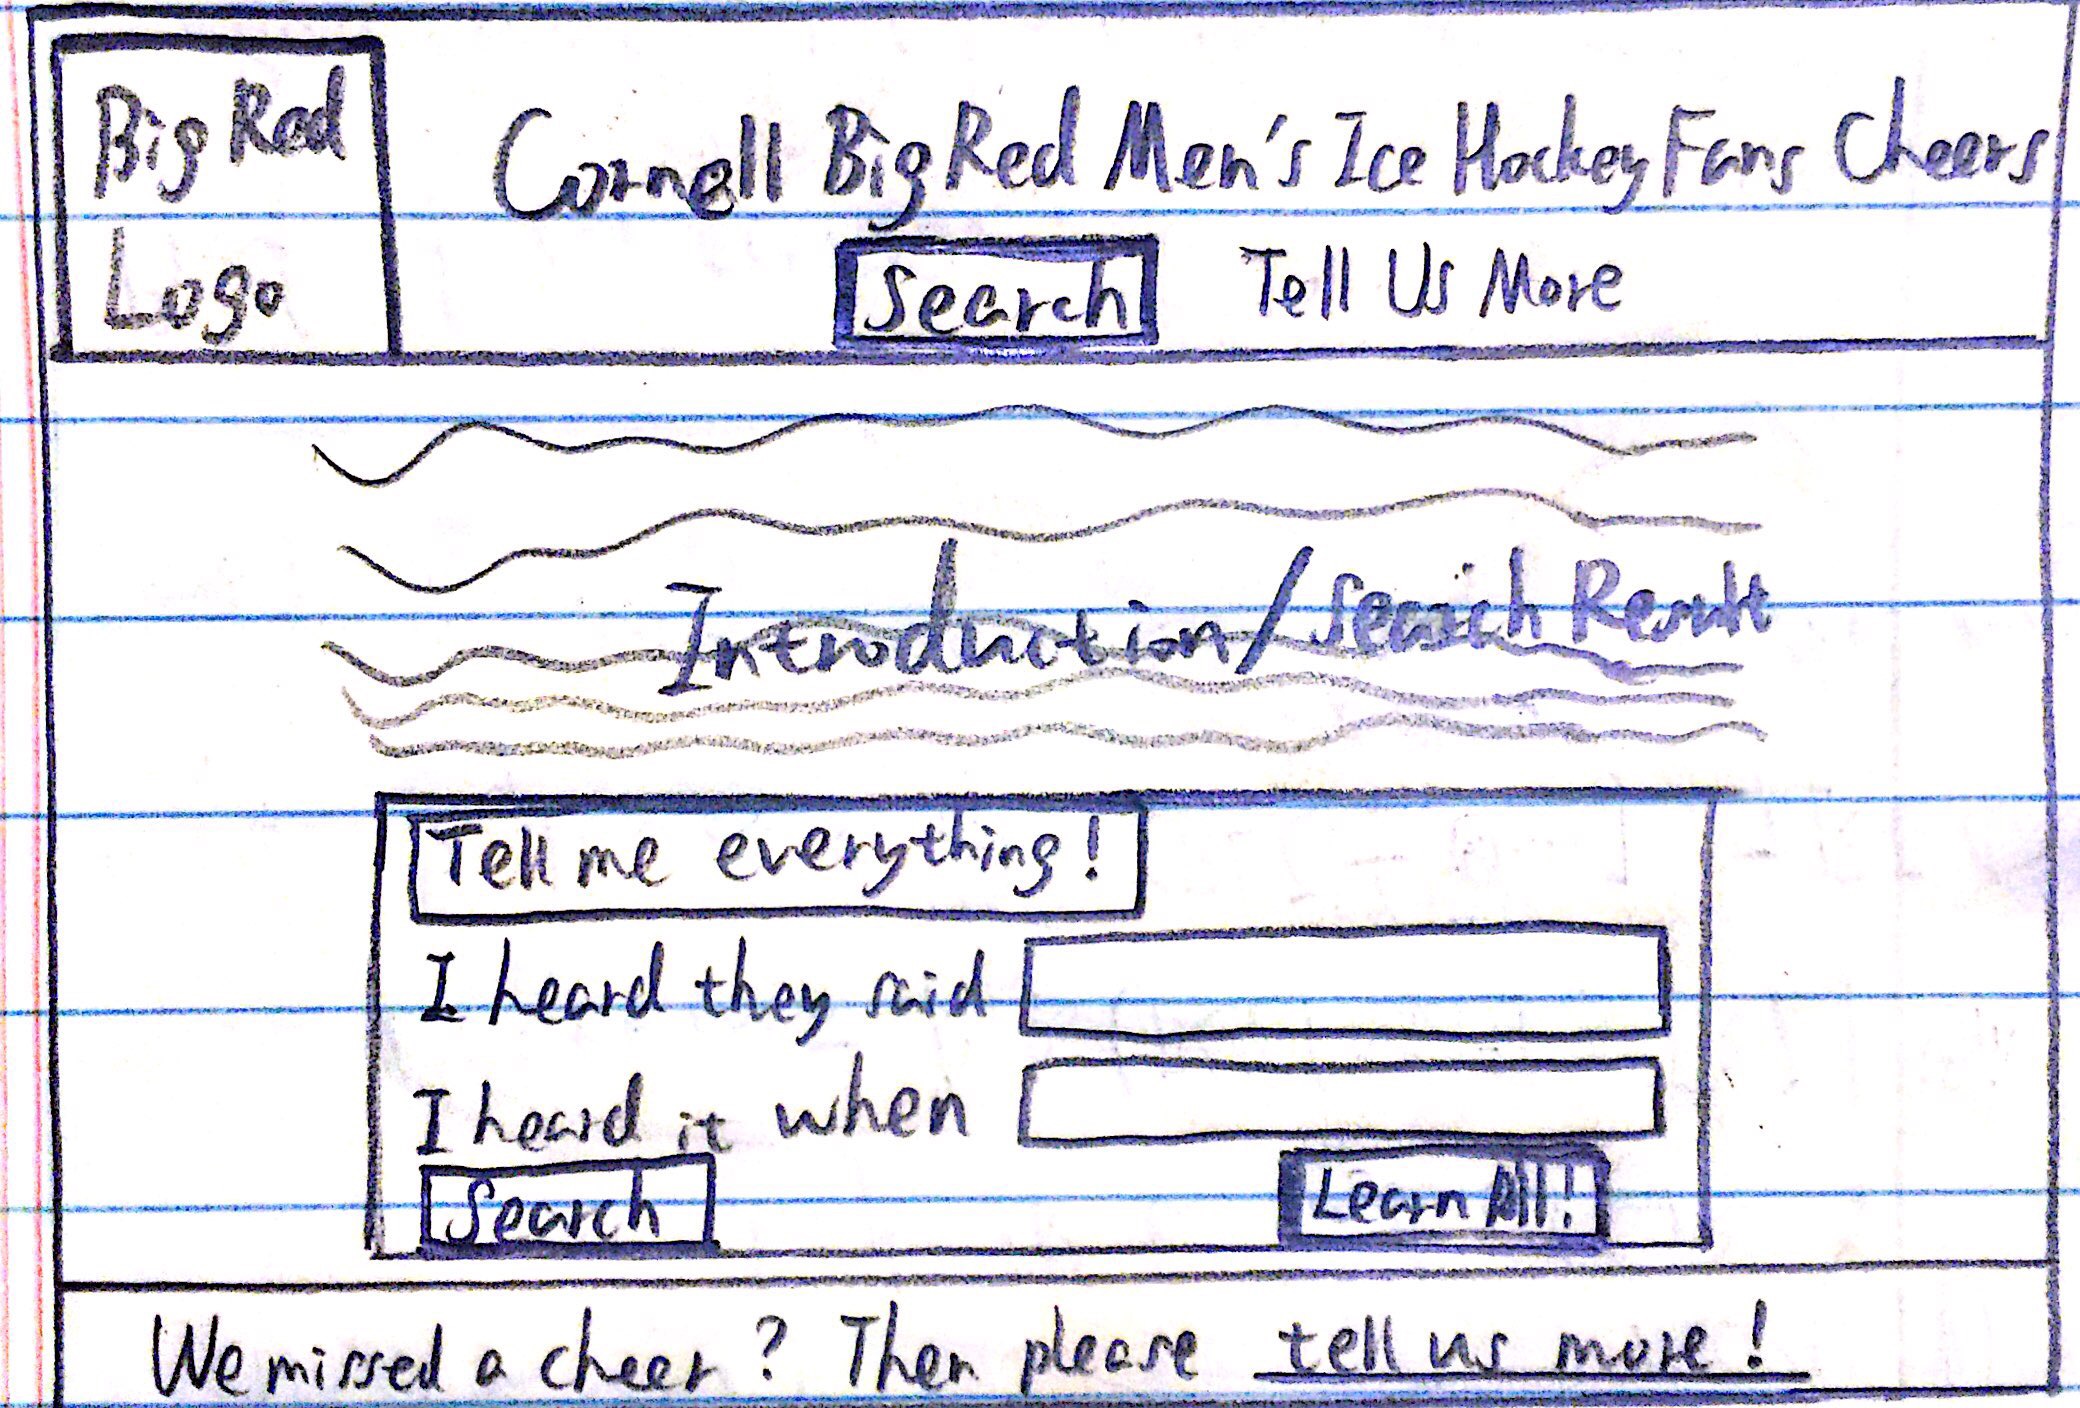 Big Red
Logo
Cornell Big Red Men's Ice Hockey Fans Cheers
Search Tell Us More
Introduction/Search Result
Tell me everything!
I heard they said
I heard it when
Search Learn All!
We missed a cheer? Then please tell us more!